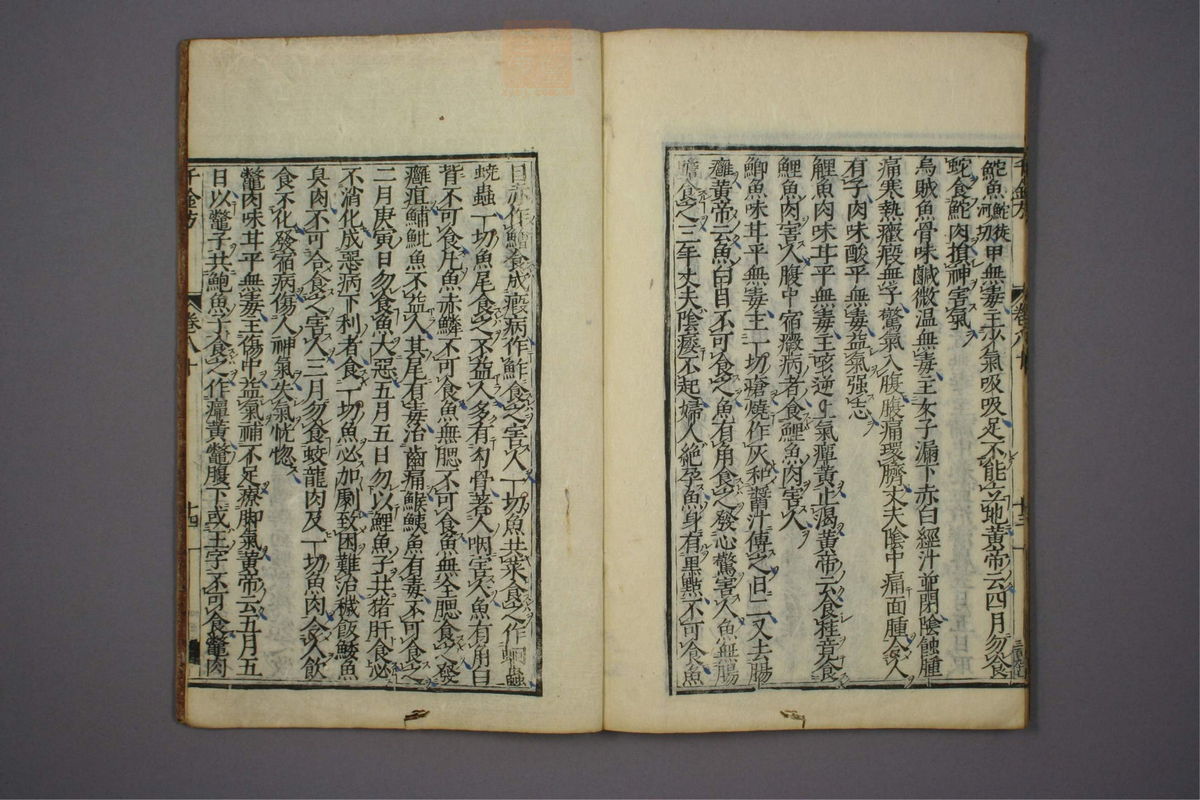 千金方 卷八十 十三
鮀魚鮀徒河切甲無毒主少氣吸吸足不能立地黃帝云四月勿食
蛇食鮀肉損神害氣
烏賊魚骨味鹹微温無毒主女子漏下赤白經汁血閉陰蝕腫
痛寒熱癥瘕無子驚氣入腹腹痛環臍丈夫陰中痛面腫令人
有子肉味酸平無毒益氣强志
鯉魚肉味甘平無毒主咳逆上氣癉黃止渴黃帝云食桂竟食
鯉魚肉害人腹中宿癥病者食鯉魚肉害人
鯽魚味甘平無毒主一切瘡燒作灰和醬汁傅之日二又去腸
癰黃帝云魚白目不可食之魚有角食之發心驚害人魚無腸
膽食之三年丈夫陰痿不起婦人絕孕魚身有黑點不可食魚
目赤作鱠食成瘕病作鮓食之害人一切魚共菜食之作蛔蟲
蟯蟲一切魚尾食之不益人多有勾骨著人咽害人魚有角白
背不可食凡魚赤鱗不可食魚無腮不可食魚無全腮食之發
癰疽鯆魮魚不益人其尾有毒治齒痛鯸鮧魚有毒不可食之
二月庚寅日勿食魚大惡五月五日勿以鯉魚子共猪肝食必
不消化成惡病下利者食一切魚必加劇致困難治穢飯鯘魚
臭肉不可合食之害人三月勿食蛟龍肉及一切魚肉令人飲
食不化發宿病傷人神氣失氣恍惚
鱉肉味甘平無毒主傷中益氣補不足療脚氣黃帝云五月五
日以鱉子共鮑魚子食之作癉黃鱉腹下成王字不可食鱉肉
千金方 卷八十 十四